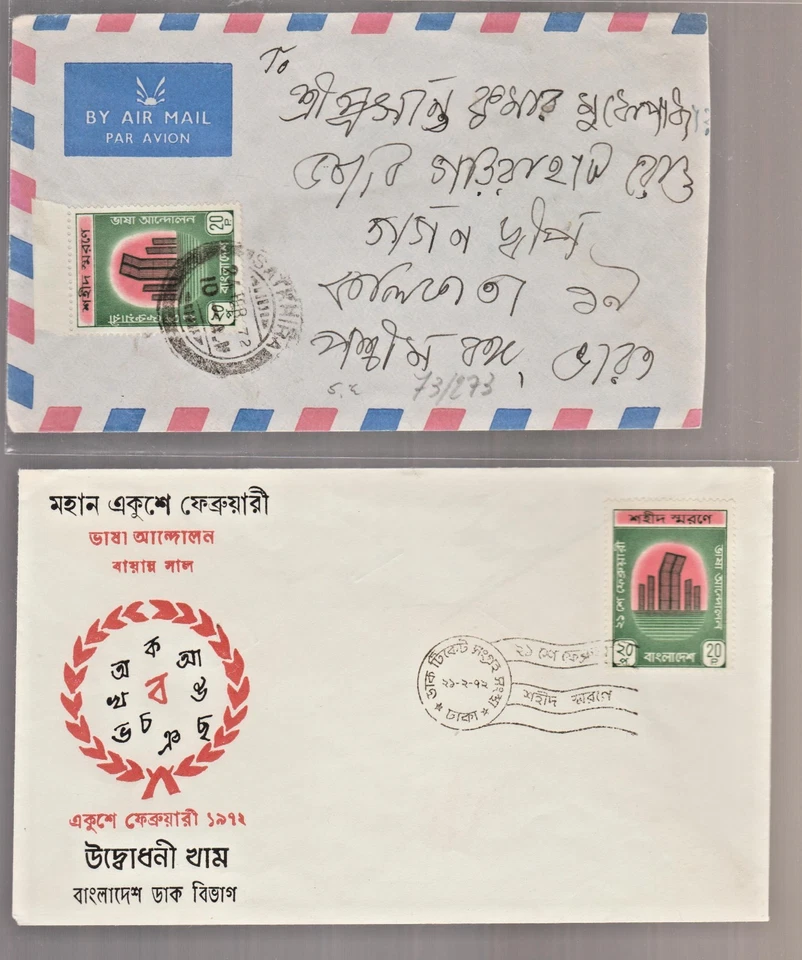 To
BY AIR MAIL
PAR AVION
শ্রী কুমার মুখোপাধ্যায়
গড়িয়াহাট রোড
গার্ডেন
কলিকাতা ১৯
পশ্চিম বঙ্গ, ভারত
73/273
শহীদ স্মরণে
ভাষা আন্দোলন
২১ শে ফেব্রুয়ারী
বাংলাদেশ
20 P
২০ প
SATKHIRA
10
72
মহান একুশে ফেব্রুয়ারী
ভাষা আন্দোলন
বায়ান্ন সাল
ক
অ
আ
খ
ব
ঙ
ভ
চ
ঞ
ছ
একুশে ফেব্রুয়ারী ১৯৭২
উদ্বোধনী খাম
বাংলাদেশ ডাক বিভাগ
শহীদ স্মরণে
২১ শে ফেব্রুয়ারী
ভাষা আন্দোলন
২০ প
বাংলাদেশ
20 P
ডাক টিকেট সংগ্রহ সংস্থা
২১-২-৭২
ঢাকা
২১ শে ফেব্রুয়া
শহীদ স্মরণে